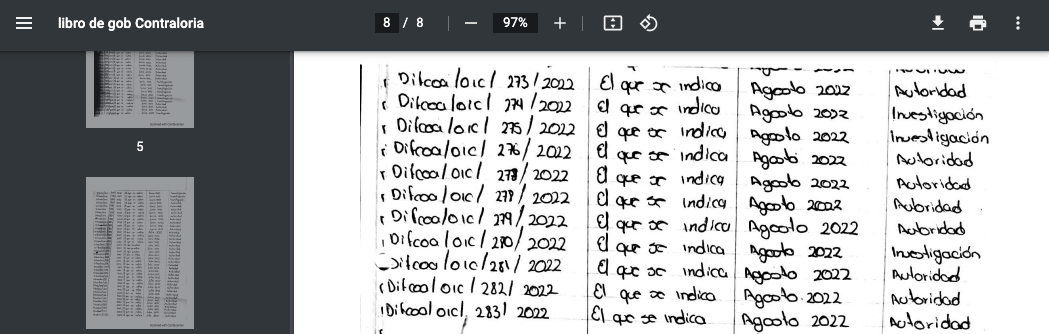 libro de gob Contraloria
8 / 8
97%
5
Difcoa/oic/ 273/2022 El que se indica Agosto 2022 Autoridad
Difcoa/oic/ 274/2022 El que se indica Agosto 2022 Investigación
Difcoa/oic/ 275/2022 El que se indica Agosto 2022 Investigación
Difcoa/oic/ 276/2022 El que se indica Agosto 2022 Autoridad
Difcoa/oic/ 2022 El que se indica Agosto 2022 Autoridad
Difcoa/oic/ 2022 El que se indica Agosto 2022 Autoridad
Difcoa/oic/ 279/2022 El que se indica Agosto 2022 Autoridad
Difcoa/oic/ 280/2022 El que se indica Agosto 2022 Investigación
Difcoa/oic/281/ 2022 El que se indica Agosto 2022 Autoridad
Difcoa/oic/ 282/ 2022 El que se indica Agosto 2022 Autoridad
Difcoa/oic/ 283/ 2022 El que se indica Agosto 2022 Autoridad